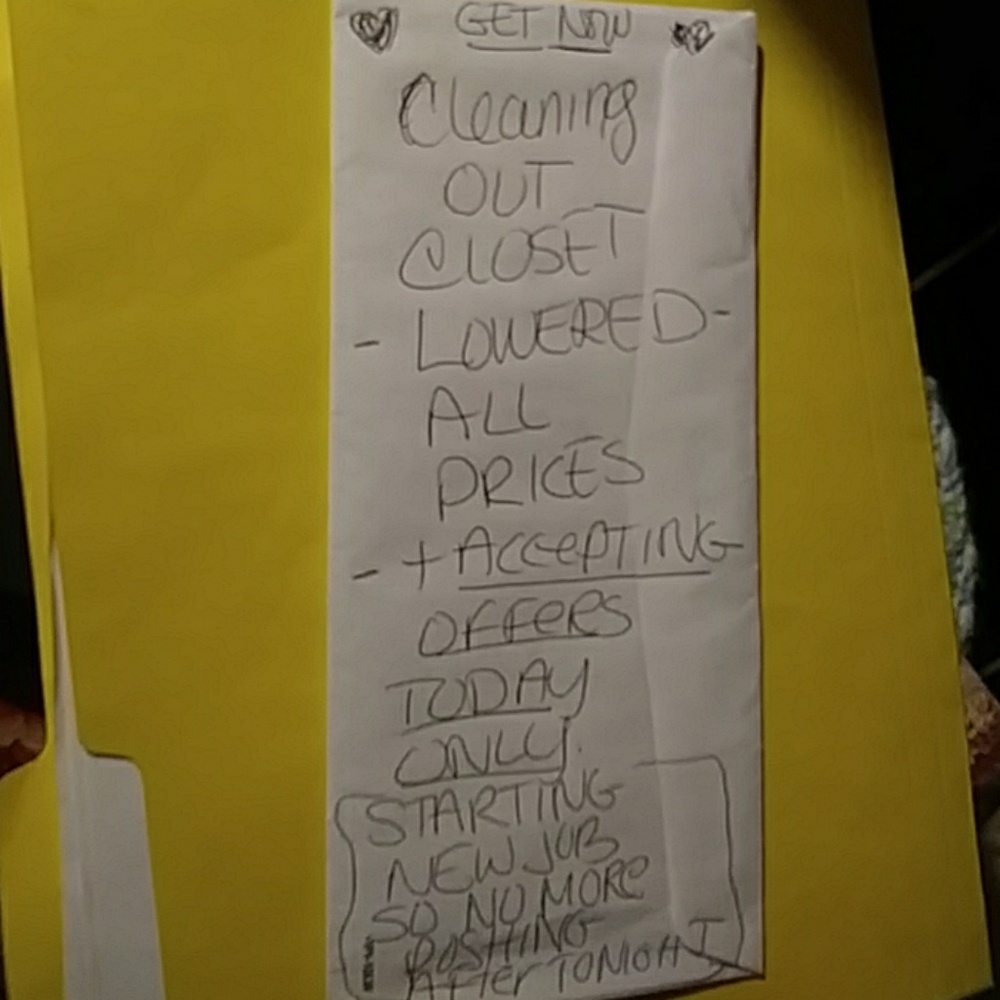 GET NOW
Cleaning
OUT
CLOSET
- LOWERED -
ALL
PRICES
- + ACCePTING
OFFeRS
TODAY
ONLY.
STARTING
NEW JOB
SO NO MORe
POSHING
AFTer TONIGHT